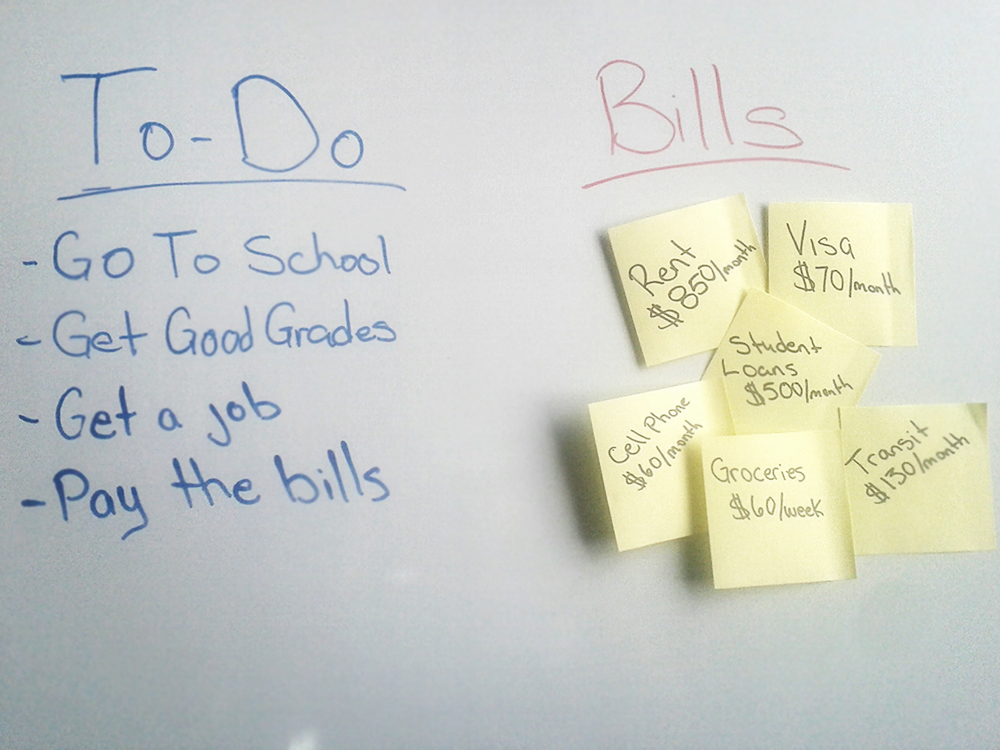 To-Do
- Go To School
- Get Good Grades
- Get a job
- Pay the bills
Bills
Rent
$850/month
Visa
$70/month
Student
Loans
$500/month
Cell Phone
$60/month
Groceries
$60/week
Transit
$130/month